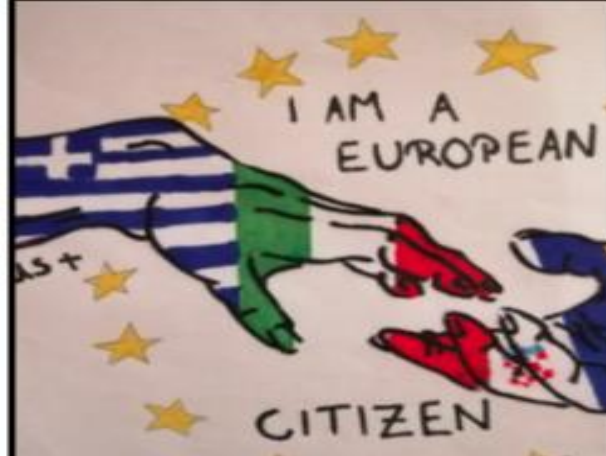 I AM A
EUROPEAN
us+
CITIZEN